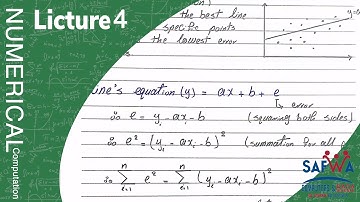 Licture 4
NUMERICAL
Computation
the best line
specific points
the lowest error
line's equation (y) = ax + b + e
error
∴ e = yᵢ - axᵢ - b (squaring both sides)
∴ e² = (yᵢ - axᵢ - b)² (summation for all
∴ Σⁿᵢ₌₁ e² = Σⁿᵢ₌₁ (yᵢ - axᵢ - b)²
SAFWA